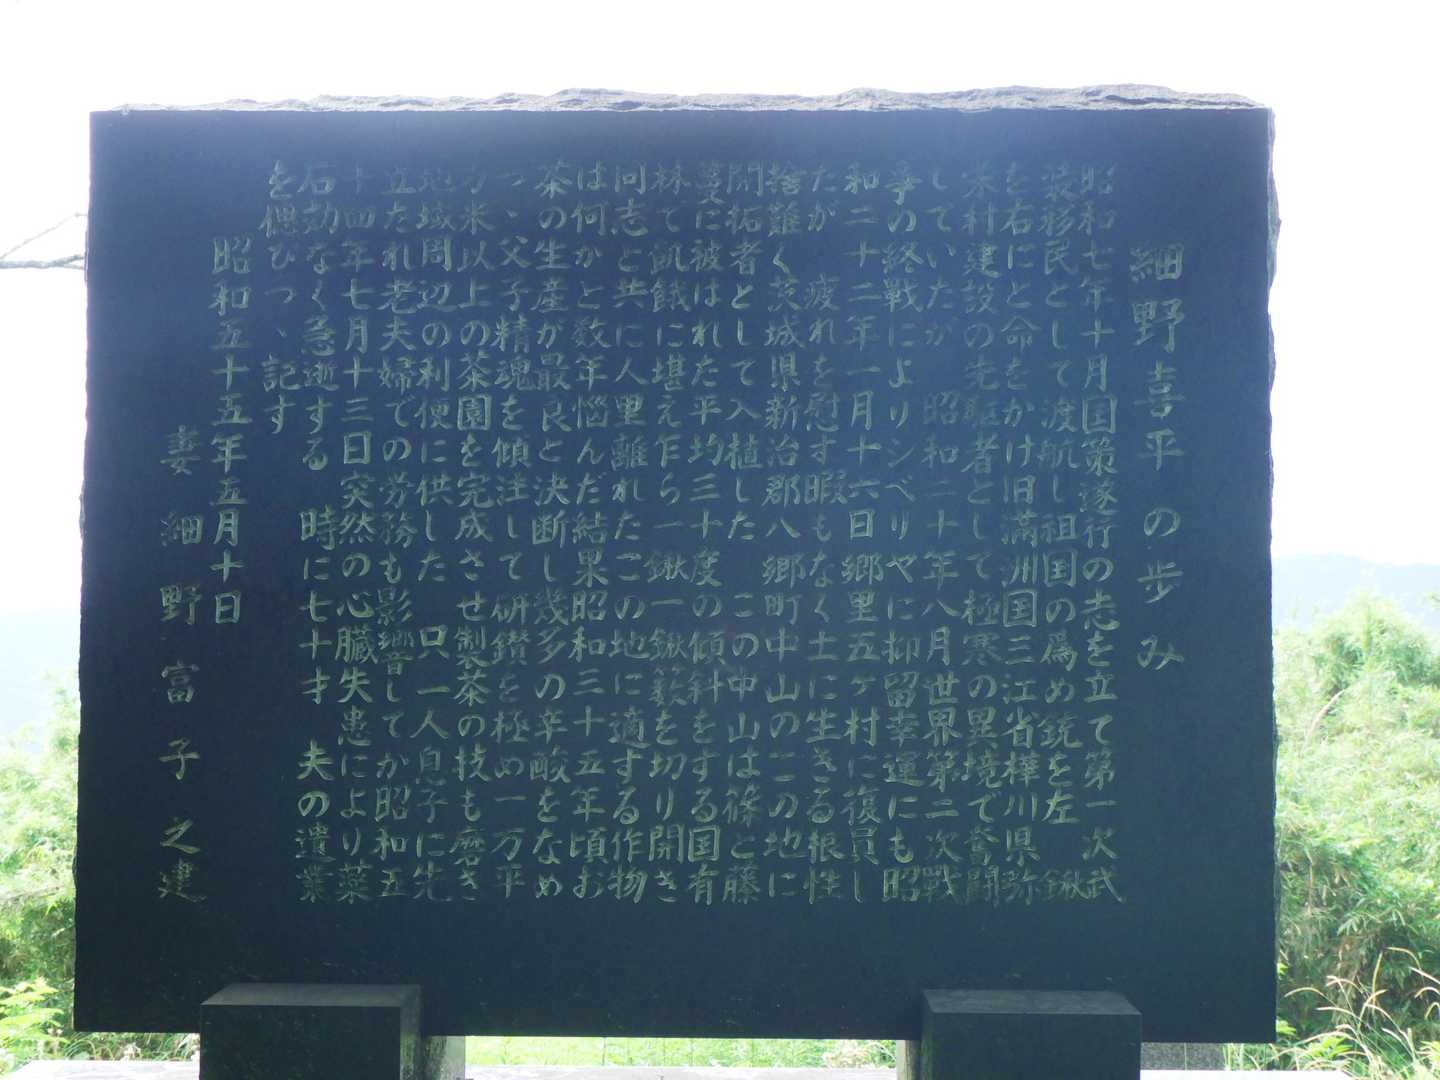 細野喜平の歩み
昭和七年十月国策遂行の志を立て第一次武
装移民として渡航し祖国の為め銃を左 鍬
を右にと命をかけ旧満洲国三江省樺川県弥
栄村建設の先駈者として極寒の異境で奮闘
していたが 昭和二十年八月世界第二次戰
爭の終戰によりシベリヤに抑留幸運にも昭
和二十二年一月十六日郷里五ヶ村に復員し
たが 疲れを慰す暇もなく土に生きる根性
捨難く茨城県新治郡八郷町中山のこの地に
開拓者として入植した この中山は篠と藤
蔓に被はれた平均三十度の傾斜をする国有
林で飢餓に堪え乍ら一鍬一鍬薮を切り開き
同志と共に人里離れたこの地に適する作物
は何かと数年悩んだ結果昭和三十五年頃お
茶の生産が最良と決断し幾多の辛酸をなめ
つゝ父子精魂を傾注して研鑽を極め一万平
方米以上の茶園を完成させ製茶の技も磨き
地域周辺の利便に供した 只一人息子に先
立たれ老夫婦での労務も影響してか昭和五
十四年七月十三日突然の心臓失患により薬
石効なく急逝する 時に七十才 夫の遺業
を偲びつゝ記す
昭和五十五年五月十日
妻 細野富子之建